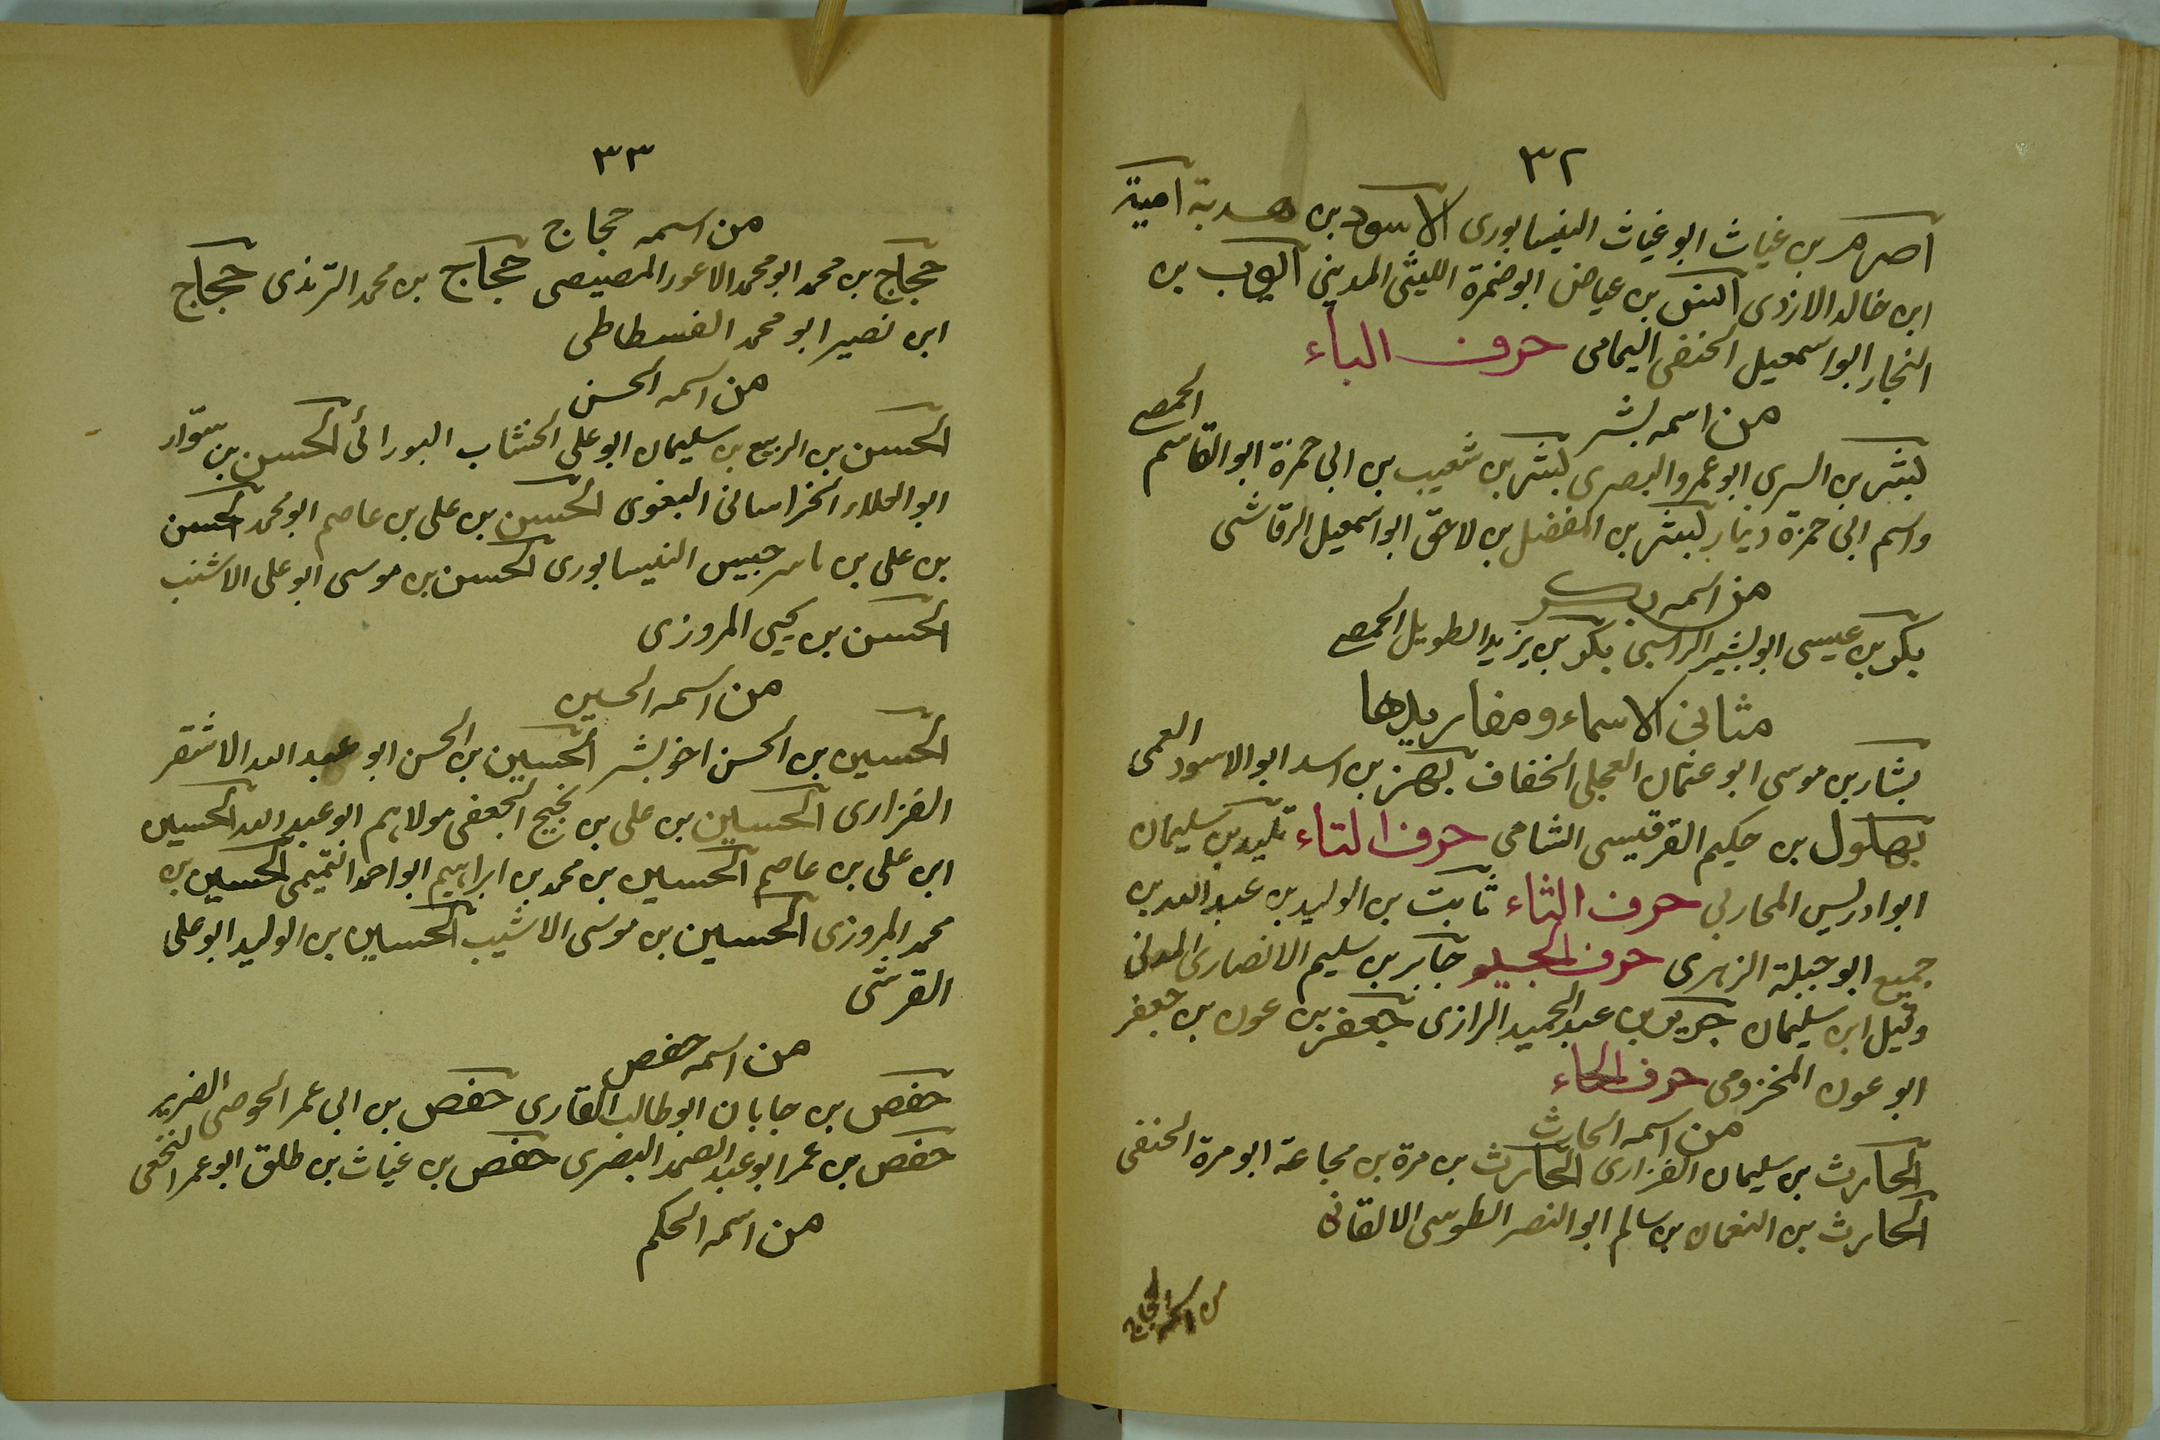 ٣٢
اصرم بن غياث ابو غياث النيسابورى الاسود بن هدبة امية
ابن خالد الازدى انس بن عياض ابو ضمرة الليثى المدينى ايوب بن
النجار ابو اسمعيل الحنفى اليمامى حرف الباء
من اسمه بشر
بشر بن السرى ابو عمرو البصرى بشر بن شعيب بن ابى حمزة ابو القاسم الحمصى
واسم ابى حمزة دينار بشر بن المفضل بن لاحق ابو اسمعيل الرقاشى
من اسمه بكر
بكر بن عيسى ابو بشير الراسبى بكر بن يزيد الطويل الحمصى
مثانى الاسماء ومفاريدها
بشار بن موسى ابو عثمان العجلى الخفاف بهز بن اسد ابو الاسود العمى
بهلول بن حكيم القرقيسى الشامى حرف التاء تليد بن سليمان
ابو ادريس المحاربى حرف الثاء ثابت بن الوليد بن عبد الله بن
جميع ابو جبلة الزهرى حرف الجيم جابر بن سليم الانصارى المدنى
وقيل ابن سليمان جرير بن عبد الحميد الرازى جعفر بن عون بن جعفر
ابو عون المخزومى حرف الحاء
من اسمه الحارث
الحارث بن سليمان الفزارى الحارث بن مرة بن مجاعة ابو مرة الحنفى
الحارث بن النعمان بن سالم ابو النصر الطوسى الالفانى
من اسمه حجاج
٣٣
من اسمه حجاج
حجاج بن محمد ابو محمد الاعور المصيصى حجاج بن محمد الترمذى حجاج
ابن نصير ابو محمد الفسطاطى
من اسمه الحسن
الحسن بن الربيع بن سليمان ابو على الخشاب البورائى الحسن بن سوّار
ابو العلاء الخراسانى البغوى الحسن بن على بن عاصم ابو محمد الحسن
بن على بن ماسرجيس النيسابورى الحسن بن موسى ابو على الاشيب
الحسن بن يحيى المروزى
من اسمه الحسين
الحسين بن الحسن اخو بشر الحسين بن الحسن ابو عبد الله الاشقر
الفزارى الحسين بن على بن نجيح الجعفى مولاهم ابو عبد الله الحسين
ابن على بن عاصم الحسين بن محمد بن ابراهيم ابو احمد التميمى الحسين بن
محمد المروزى الحسين بن موسى الاشيب الحسين بن الوليد ابو على
القرشى
من اسمه حفص
حفص بن جابان ابو طالب القارى حفص بن ابى عمر الحوضى الضرير
حفص بن عمر ابو عبد الصمد البصرى حفص بن غياث بن طلق ابو عمر النخعى
من اسمه الحكم